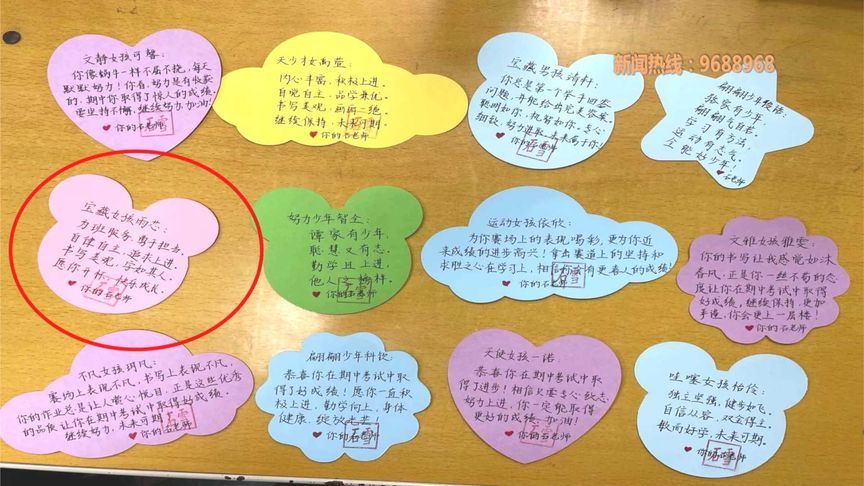 文静女孩可馨：
你像蜗牛一样不屈不挠，每天
默默努力！你看，努力是有收获
的，期中你取得了惊人的成绩。
坚持不懈，继续努力，加油！
你的石老师
天少才女禹萱：
内心丰富，积极上进。
自觉自主，品学兼优。
书写美观，画画一绝。
继续保持，未来可期。
你的石老师
宝藏男孩
你总是第一个举手回答
问题，并能给出完美答案。
聪明如你，机智如你，专心
细致，努力进取，未来属于你！
石雪
新闻热线：9688968
翩翩少年
张家有少年，
翩翩气自若。
学习有方法，
运动有志气。
全能好少年！
你的石老师
宝藏女孩雨芯：
为班服务，勇于担当。
自律自主，追求上进。
书写美观，字如其人。
愿你开怀，快乐成长。
你的石老师
努力少年智全：
谭家有少年，
聪慧又有志。
勤学且上进，
他人之榜样。
你的石老师
运动女孩依欣：
为你赛场上的表现喝彩，更为你近
来成绩的进步高兴！拿出赛道上的坚持和
求胜之心在学习上，相信你会有更喜人的成绩！
你的石老师
文雅女孩雅雯：
你的书写让我感觉如沐
春风，正是你一丝不苟的态
度让你在期中考试中取得
好成绩，继续保持，更加
矛逸，你会更上一层楼！
你的石老师
不凡女孩珂风：
赛场上表现不凡，书写上表现不凡，
你的作业总是让人赏心悦目，正是这些优秀
的品质让你在期中考试中取得好成绩。
继续努力，未来可期！
你的石老师
翩翩少年科钦：
恭喜你在期中考试中取
得了好成绩！愿你一直积
极上进，勤学向上，身体
健康，绽放光芒。
你的石老师
石雪
天使女孩一诺：
恭喜你在期中考试中取
得了进步！相信只要专心致志，
努力上进，你一定能取得
更好的成绩，加油！
你的石老师
石雪
哇噻女孩怡伶：
独立坚强，健步如飞。
自信从容，双全得主。
敏而好学，未来可期。
你的石老师
石雪